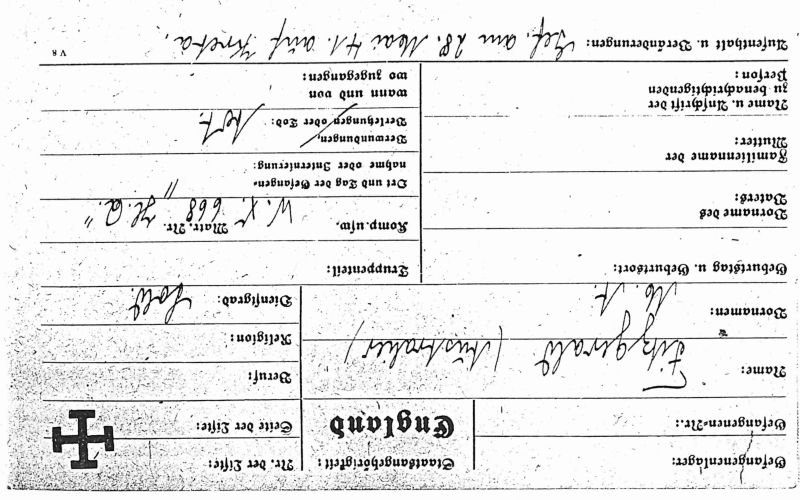 Gefangenenlager:
Gefangenen-Nr.:
Staatsangehörigkeit:
England
Nr. der Liste:
Seite der Liste:
Name: Fitzgerald. (Australier)
Vornamen: M. A.
Beruf:
Religion:
Dienstgrad: Sold.
Geburtstag u. Geburtsort:
Vorname des
Vaters:
Familienname der
Mutter:
Name u. Anschrift der
zu benachrichtigenden
Person:
Truppenteil:
Komp. usw. Matr. Nr.
W. X. 668 „H. Q.“
Ort und Tag der Gefangen-
nahme oder Internierung:
Verwundungen,
Verletzungen oder Tod:
wann und von
wo zugegangen:
Aufenthalt u. Veränderungen: Gef. am 28. Mai 41. auf Kreta.
V 8